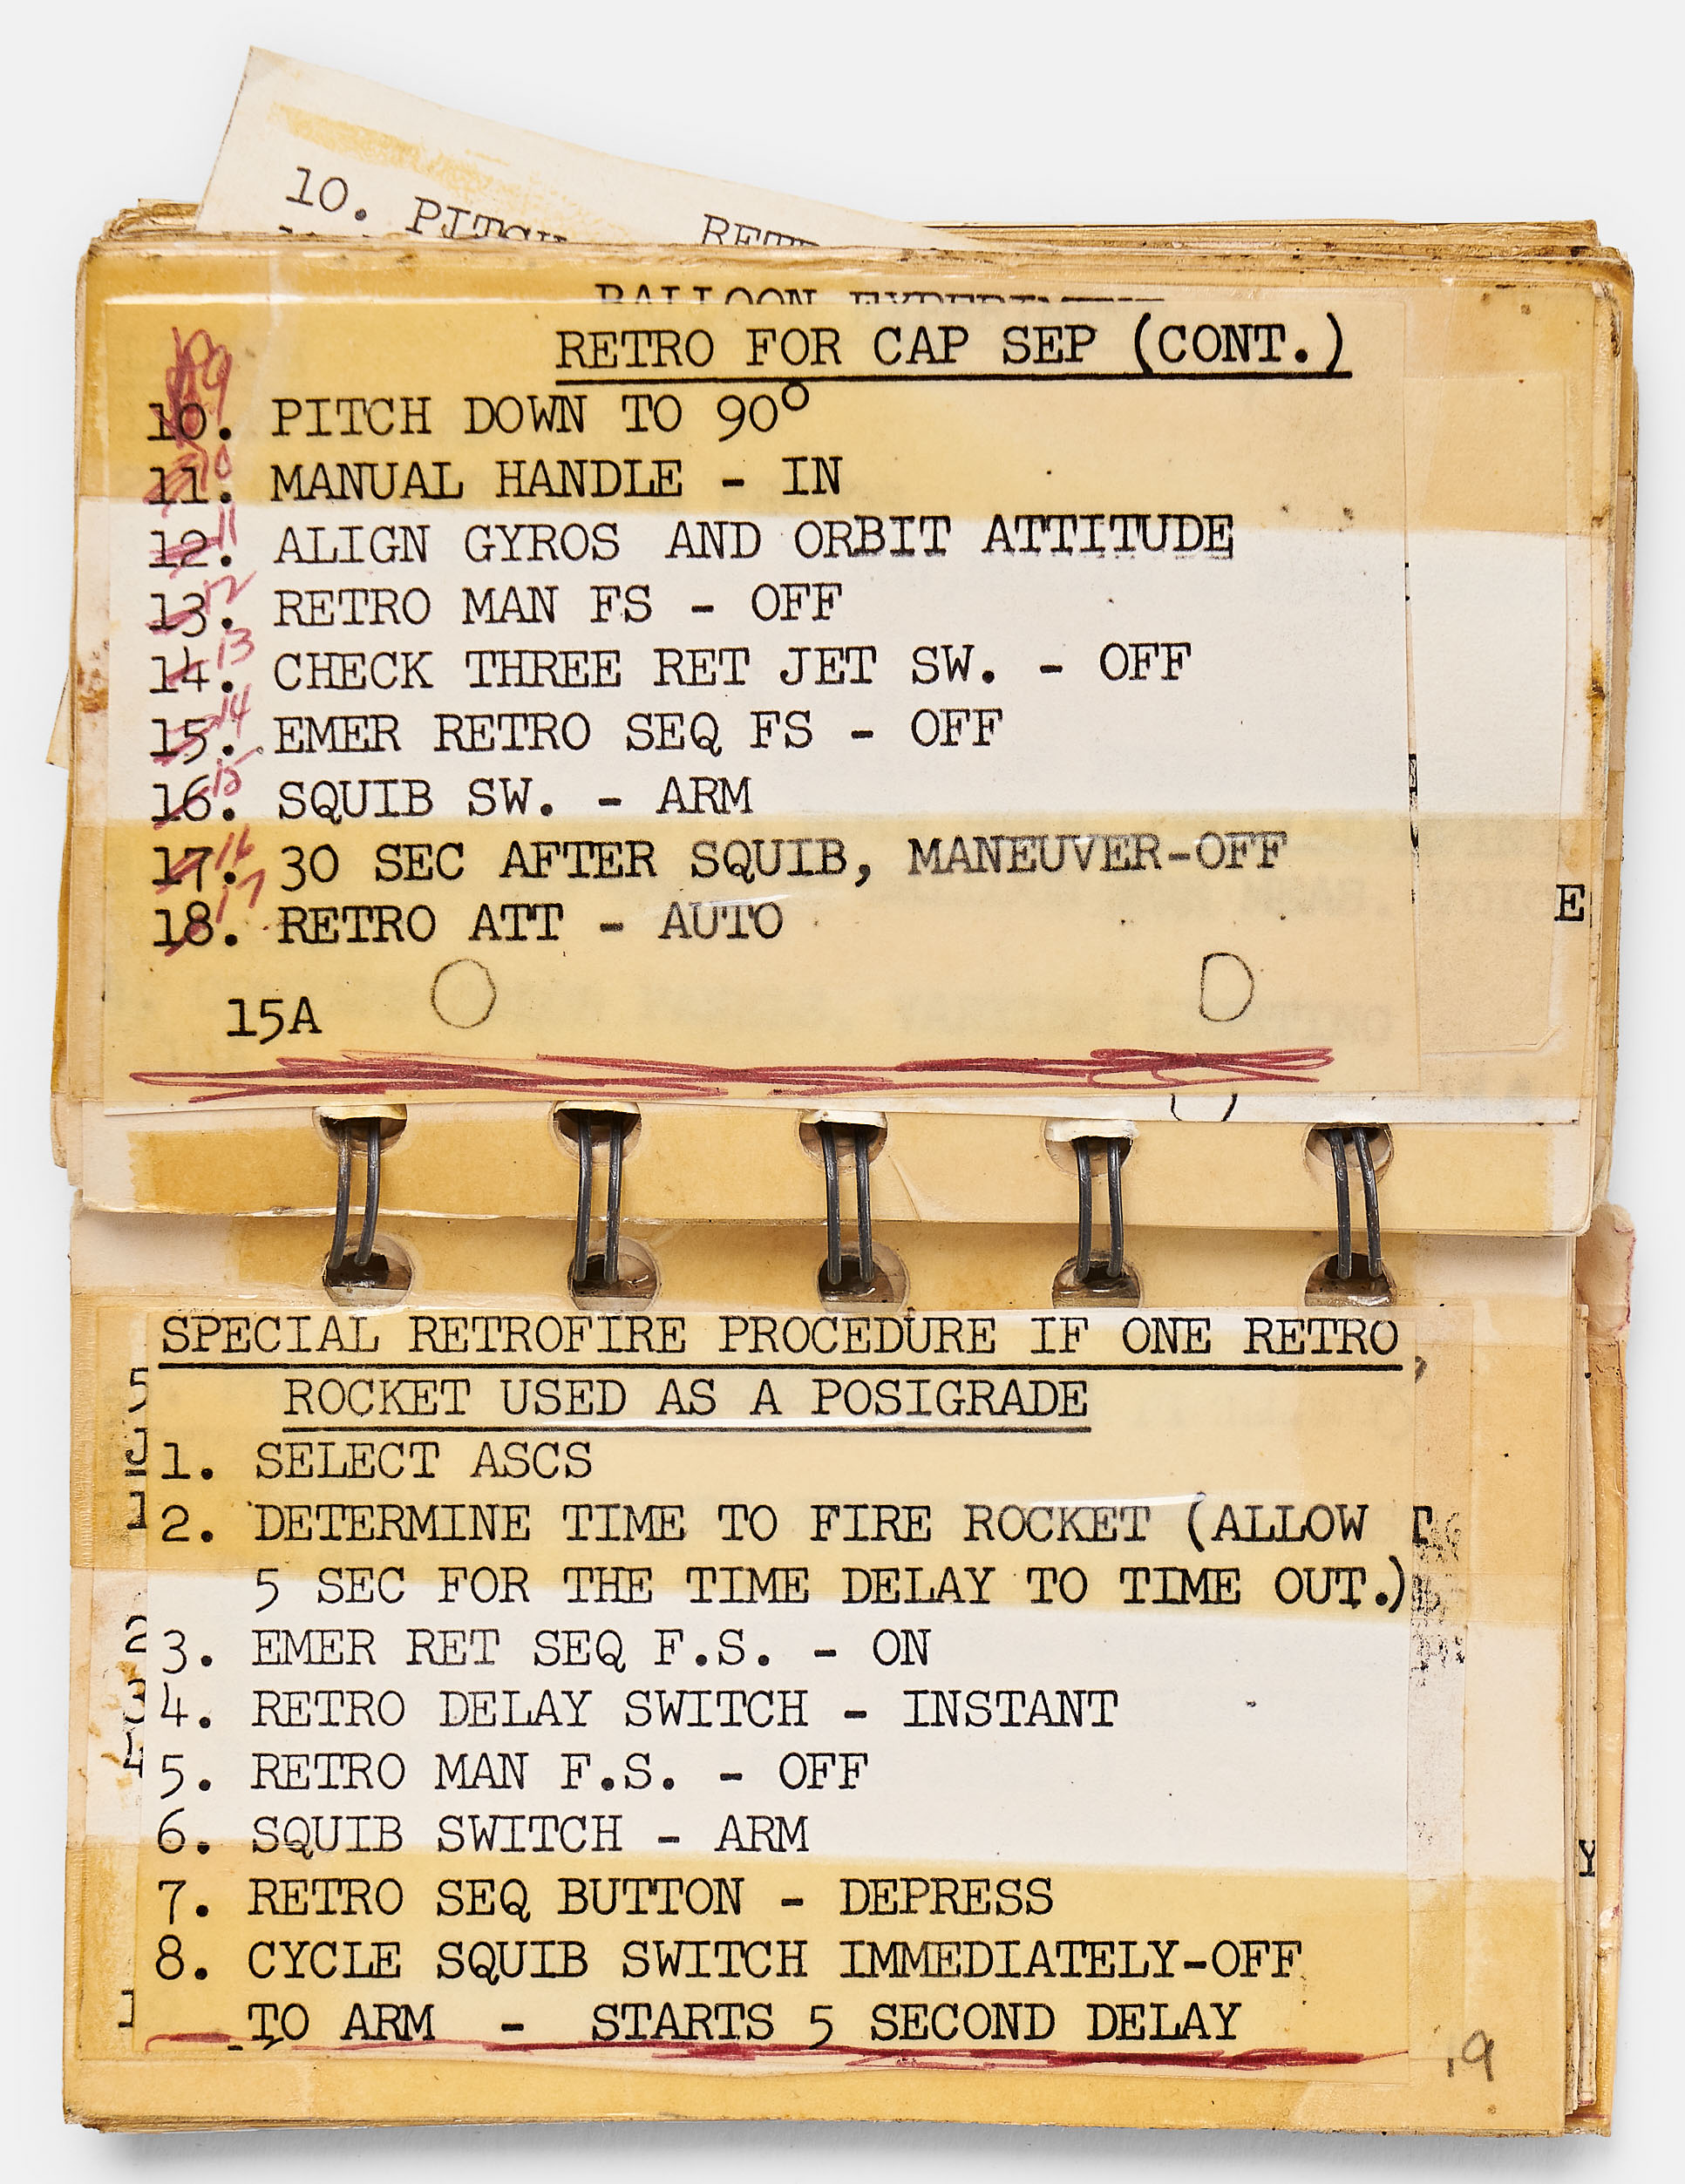 10. PITCH RETR
BALLOON EXPERIMENT
RETRO FOR CAP SEP (CONT.)
9
10. PITCH DOWN TO 90°
10
11. MANUAL HANDLE - IN
11
12. ALIGN GYROS AND ORBIT ATTITUDE
12
13. RETRO MAN FS - OFF
13
14. CHECK THREE RET JET SW. - OFF
14
15. EMER RETRO SEQ FS - OFF
15
16. SQUIB SW. - ARM
16
17. 30 SEC AFTER SQUIB, MANEUVER-OFF
17
18. RETRO ATT - AUTO
E
15A
SPECIAL RETROFIRE PROCEDURE IF ONE RETRO
ROCKET USED AS A POSIGRADE
5
1. SELECT ASCS
1
2. DETERMINE TIME TO FIRE ROCKET (ALLOW T
5 SEC FOR THE TIME DELAY TO TIME OUT.)
2
3. EMER RET SEQ F.S. - ON
3
4. RETRO DELAY SWITCH - INSTANT
4
5. RETRO MAN F.S. - OFF
6. SQUIB SWITCH - ARM
Y
7. RETRO SEQ BUTTON - DEPRESS
8. CYCLE SQUIB SWITCH IMMEDIATELY-OFF
TO ARM - STARTS 5 SECOND DELAY
19